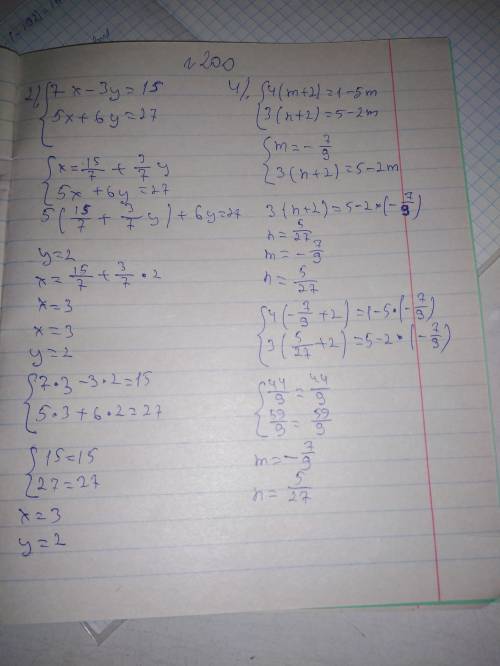 №200
2) { 7x-3y=15
5x+6y=27
{ x=15/7 + 3/7 y
5x+6y=27
5(15/7 + 3/7 y)+6y=27
y=2
x=15/7 + 3/7 • 2
x=3
x=3
y=2
{ 7•3-3•2=15
5•3+6•2=27
{ 15=15
27=27
x=3
y=2
4) { 4(m+2)=1-5m
3(n+2)=5-2m
{ m=-7/9
3(n+2)=5-2m
3(n+2)=5-2•(-7/9)
n=5/27
m=-7/9
n=5/27
{ 4(-7/9+2)=1-5•(-7/9)
3(5/27+2)=5-2•(-7/9)
{ 44/9=44/9
59/9=59/9
m=-7/9
n=5/27